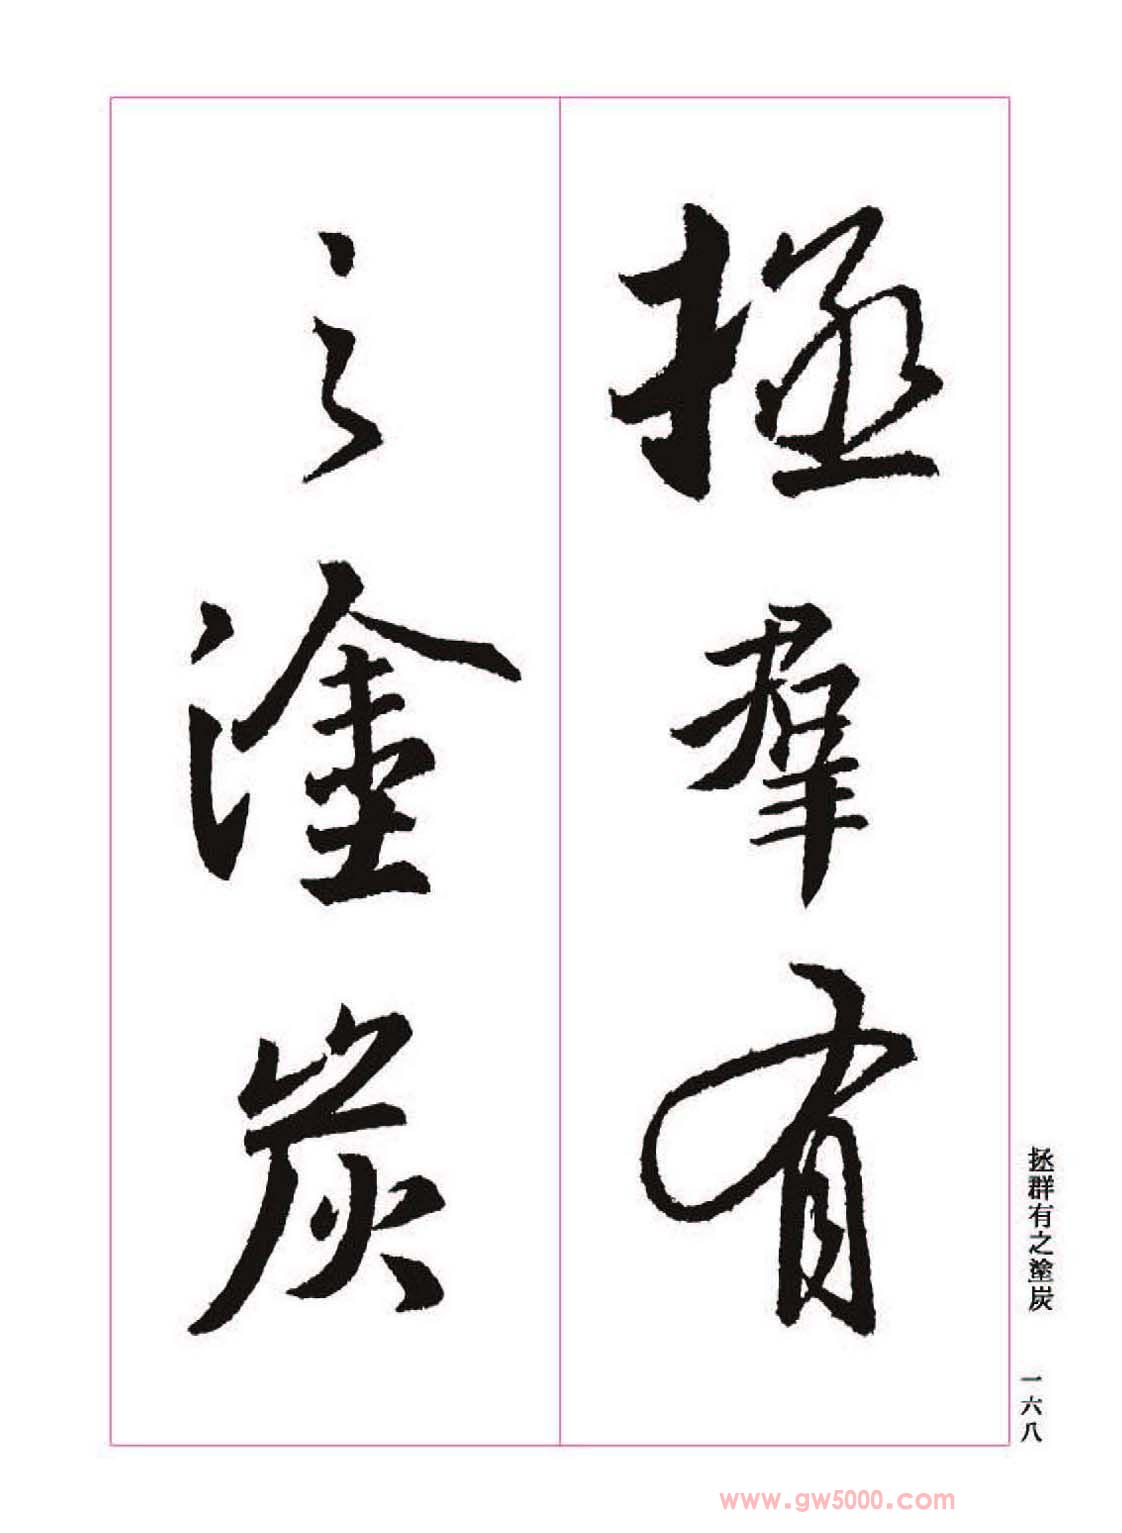 拯羣有
之塗炭
拯群有之塗炭
一六八
www.gw5000.com